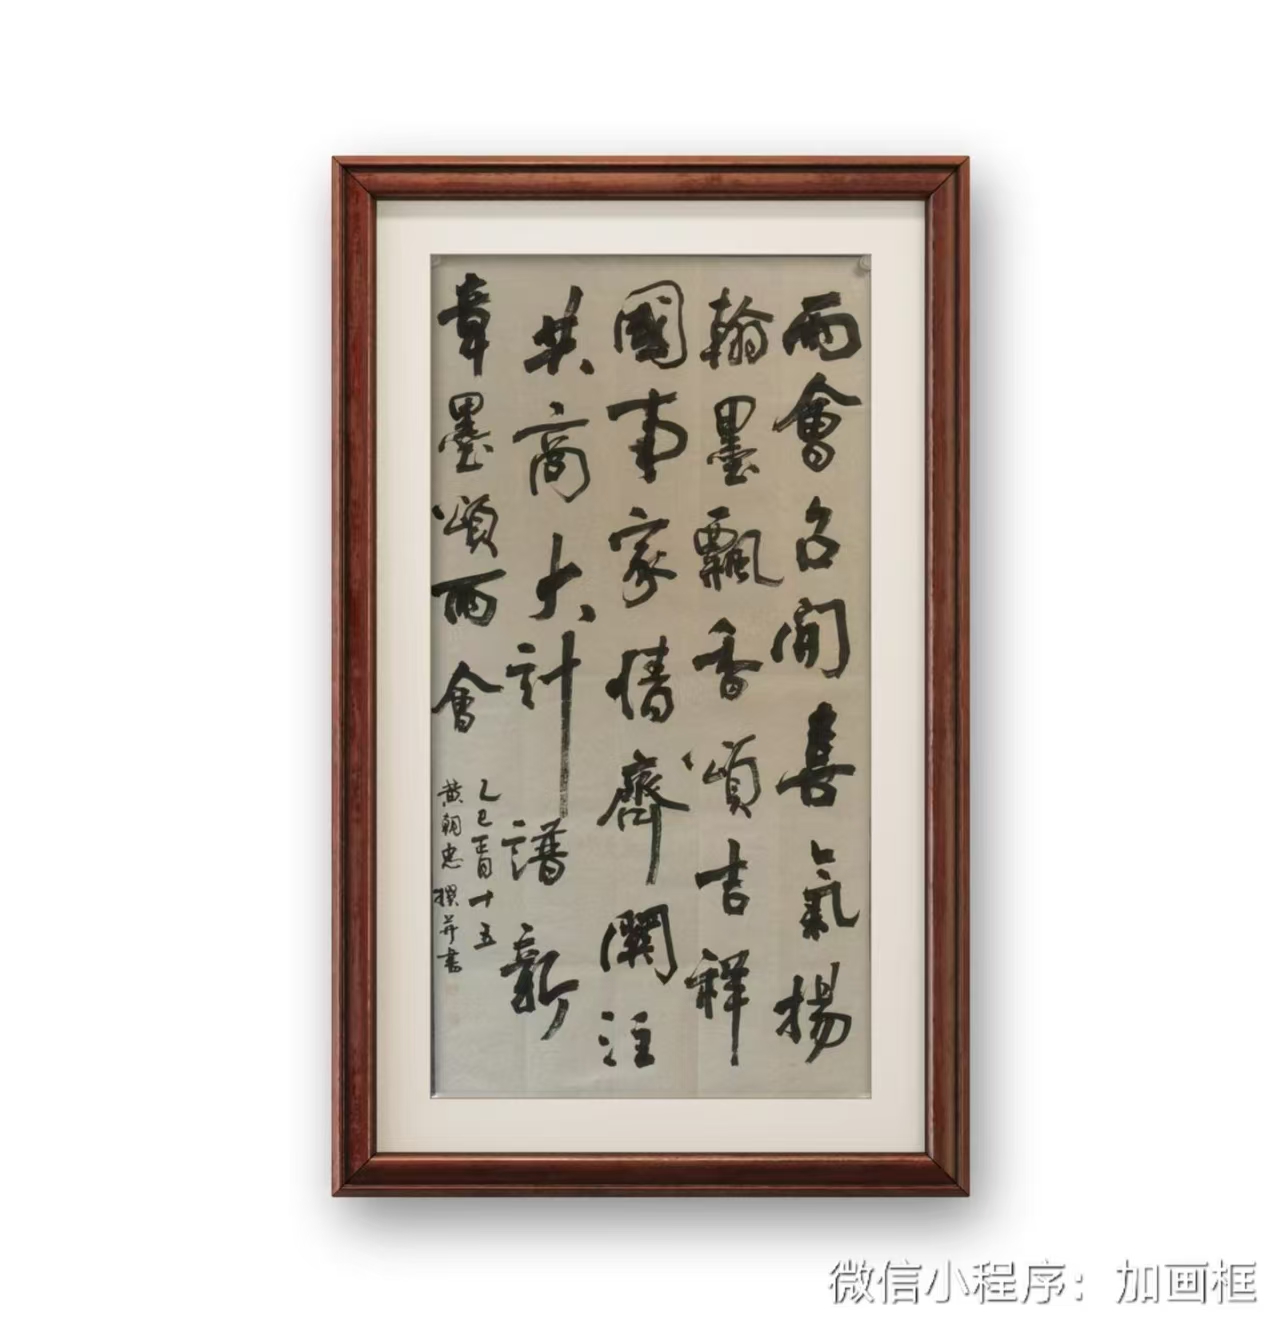 兩會召開喜氣揚
翰墨飄香頌吉祥
國事家情齊關注
共商大計譜新
章墨頌兩會
乙巳正月十五
黄朝忠撰并書
微信小程序：加画框